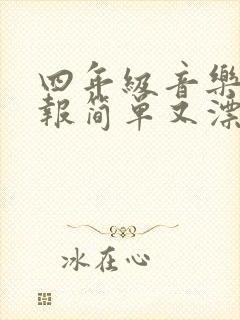 四年级音樂
報简单又漂
冰在心